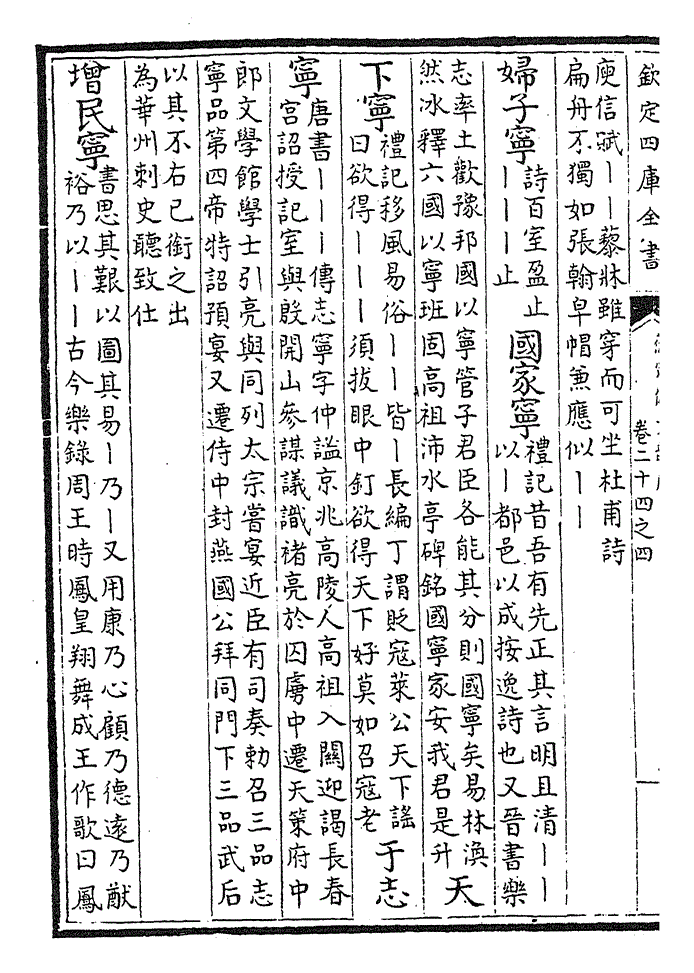 欽定四庫全書
卷二十四之四
庾信賦丨丨藜牀雖穿而可坐杜甫詩
扁舟不獨如張翰皁帽兼應似丨丨
婦子寧
詩百室盈止
丨丨丨止
國家寧
禮記昔吾有先正其言明且清丨丨
以丨都邑以成按逸詩也又晉書樂
志率土歡豫邦國以寧管子君臣各能其分則國寧矣易林渙
然冰釋六國以寧班固高祖沛水亭碑銘國寧家安我君是升
天
下寧
禮記移風易俗丨丨皆丨長編丁謂貶寇萊公天下謡
曰欲得丨丨丨須拔眼中釘欲得天下好莫如召寇老
于志
寧
唐書丨丨丨傳志寧字仲謐京兆高陵人高祖入關迎謁長春
宮詔授記室與殷開山參謀議識褚亮於囚虜中遷天策府中
郎文學館學士引亮與同列太宗嘗宴近臣有司奏勅召三品志
寧品第四帝特詔預宴又遷侍中封燕國公拜同門下三品武后
以其不右已銜之出
為華州刺史聽致仕
增民寧
書思其艱以圖其易丨乃丨又用康乃心顧乃德遠乃猷
裕乃以丨丨古今樂錄周王時鳳皇翔舞成王作歌曰鳳